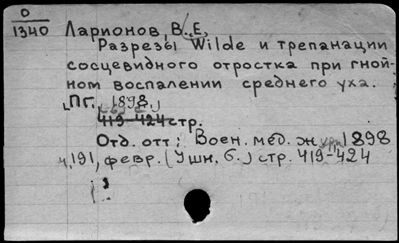 О
1340 Ларионов, В. Е.
Разрезы Wilde и трепанации
сосцевидного отростка при гной-
ном воспалении среднего уха.
Пг. 1898.
419-424 стр.
Отд. отт: Воен. мед. журн 1898
ч. 191, февр. (Ушн. б.) стр. 419-424